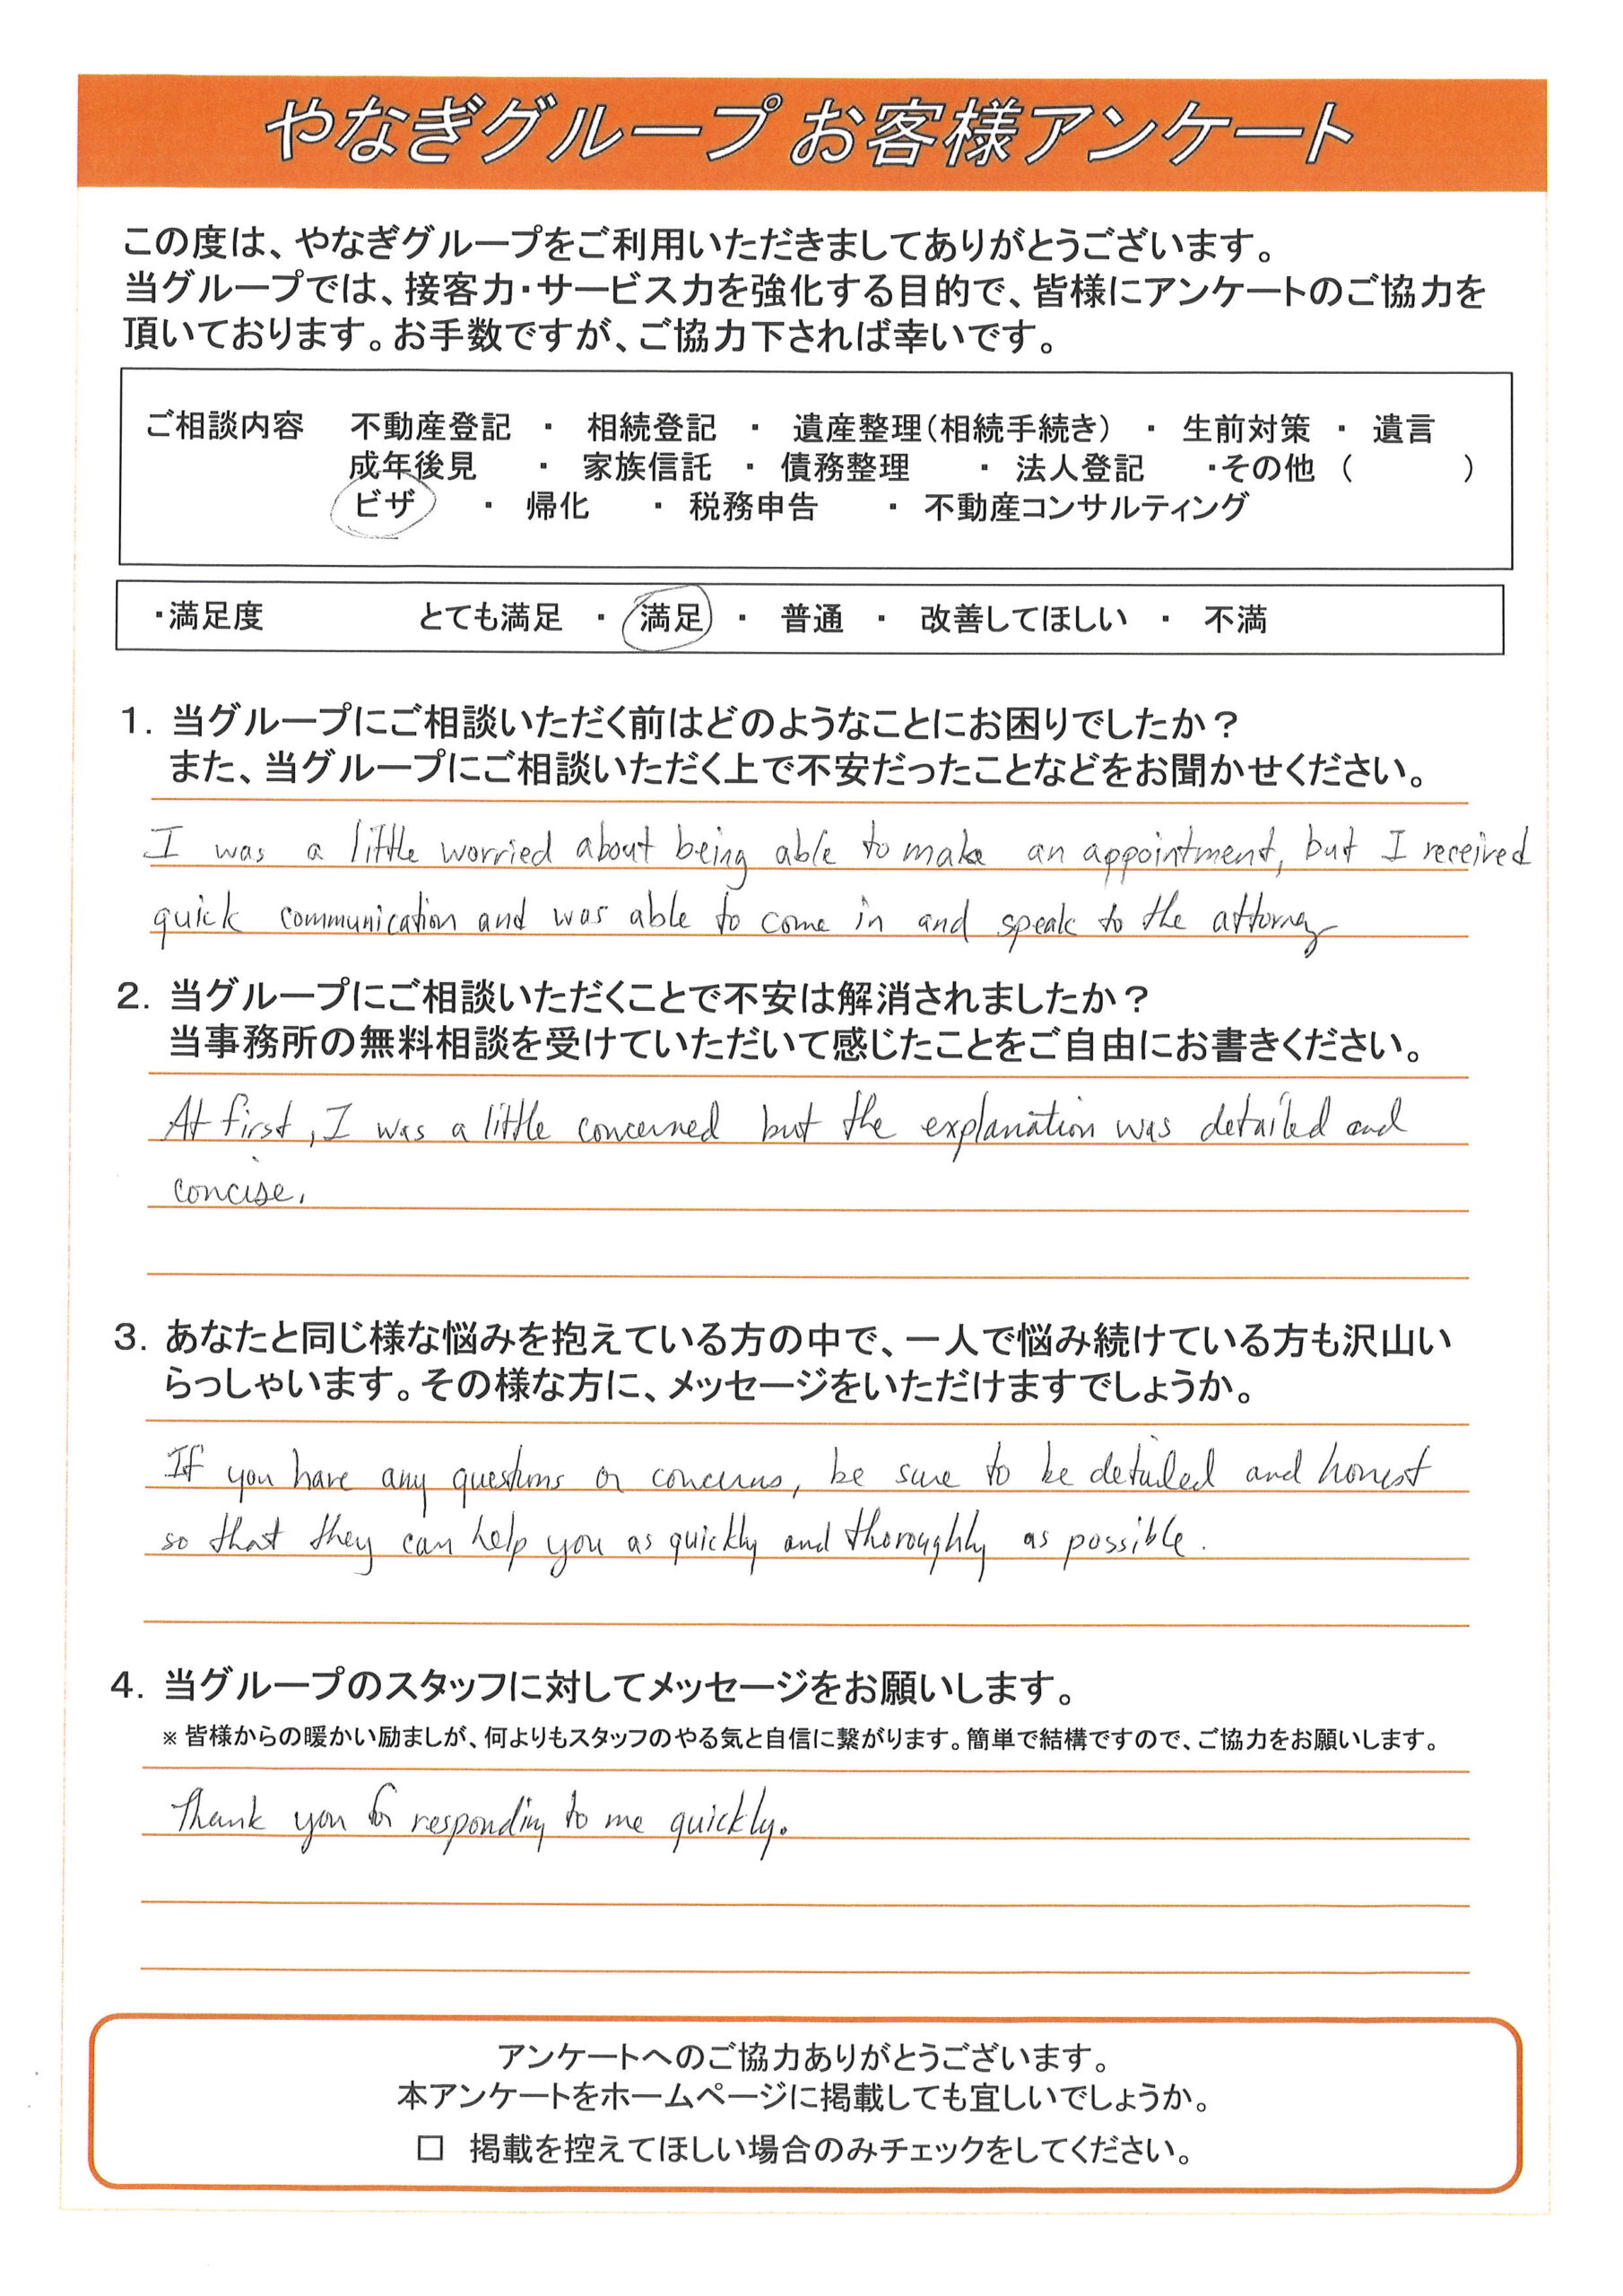 やなぎグループ お客様アンケート
この度は、やなぎグループをご利用いただきましてありがとうございます。
当グループでは、接客力・サービス力を強化する目的で、皆様にアンケートのご協力を
頂いております。お手数ですが、ご協力下されば幸いです。
ご相談内容 不動産登記 ・ 相続登記 ・ 遺産整理(相続手続き) ・ 生前対策 ・ 遺言
成年後見 ・ 家族信託 ・ 債務整理 ・ 法人登記 ・その他 ( )
ビザ ・ 帰化 ・ 税務申告 ・ 不動産コンサルティング
・満足度 とても満足 ・ 満足 ・ 普通 ・ 改善してほしい ・ 不満
1. 当グループにご相談いただく前はどのようなことにお困りでしたか？
また、当グループにご相談いただく上で不安だったことなどをお聞かせください。
I was a little worried about being able to make an appointment, but I received
quick communication and was able to come in and speak to the attorney
2. 当グループにご相談いただくことで不安は解消されましたか？
当事務所の無料相談を受けていただいて感じたことをご自由にお書きください。
At first, I was a little concerned but the explanation was detailed and
concise.
3. あなたと同じ様な悩みを抱えている方の中で、一人で悩み続けている方も沢山い
らっしゃいます。その様な方に、メッセージをいただけますでしょうか。
If you have any questions or concerns, be sure to be detailed and honest
so that they can help you as quickly and thoroughly as possible.
4. 当グループのスタッフに対してメッセージをお願いします。
※ 皆様からの暖かい励ましが、何よりもスタッフのやる気と自信に繋がります。簡単で結構ですので、ご協力をお願いします。
Thank you for responding to me quickly.
アンケートへのご協力ありがとうございます。
本アンケートをホームページに掲載しても宜しいでしょうか。
□ 掲載を控えてほしい場合のみチェックをしてください。